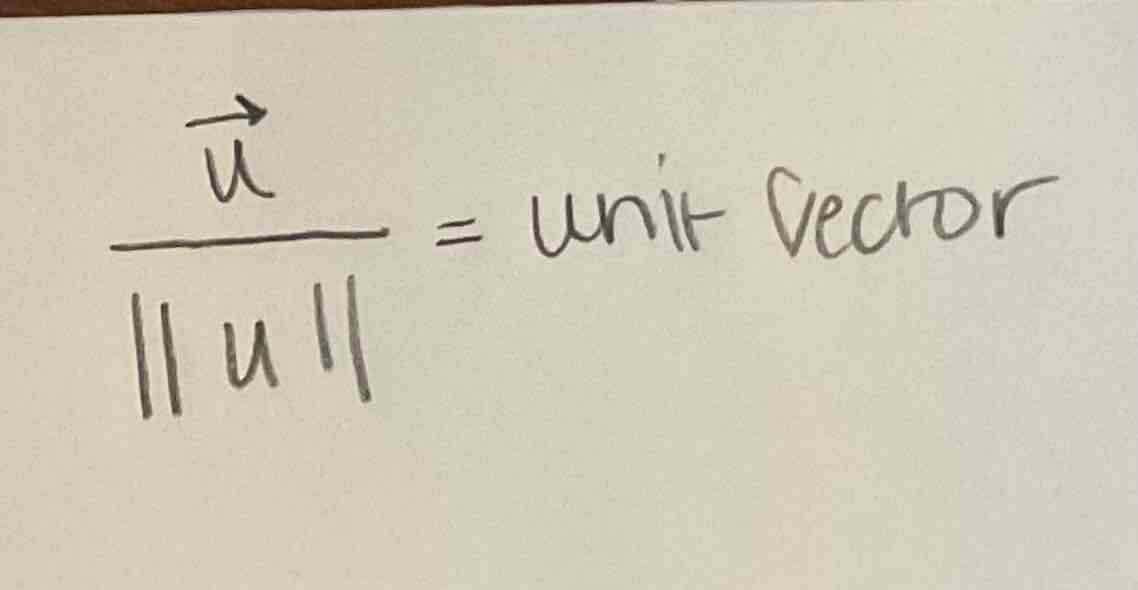 u⃗ / ||u|| = unit vector